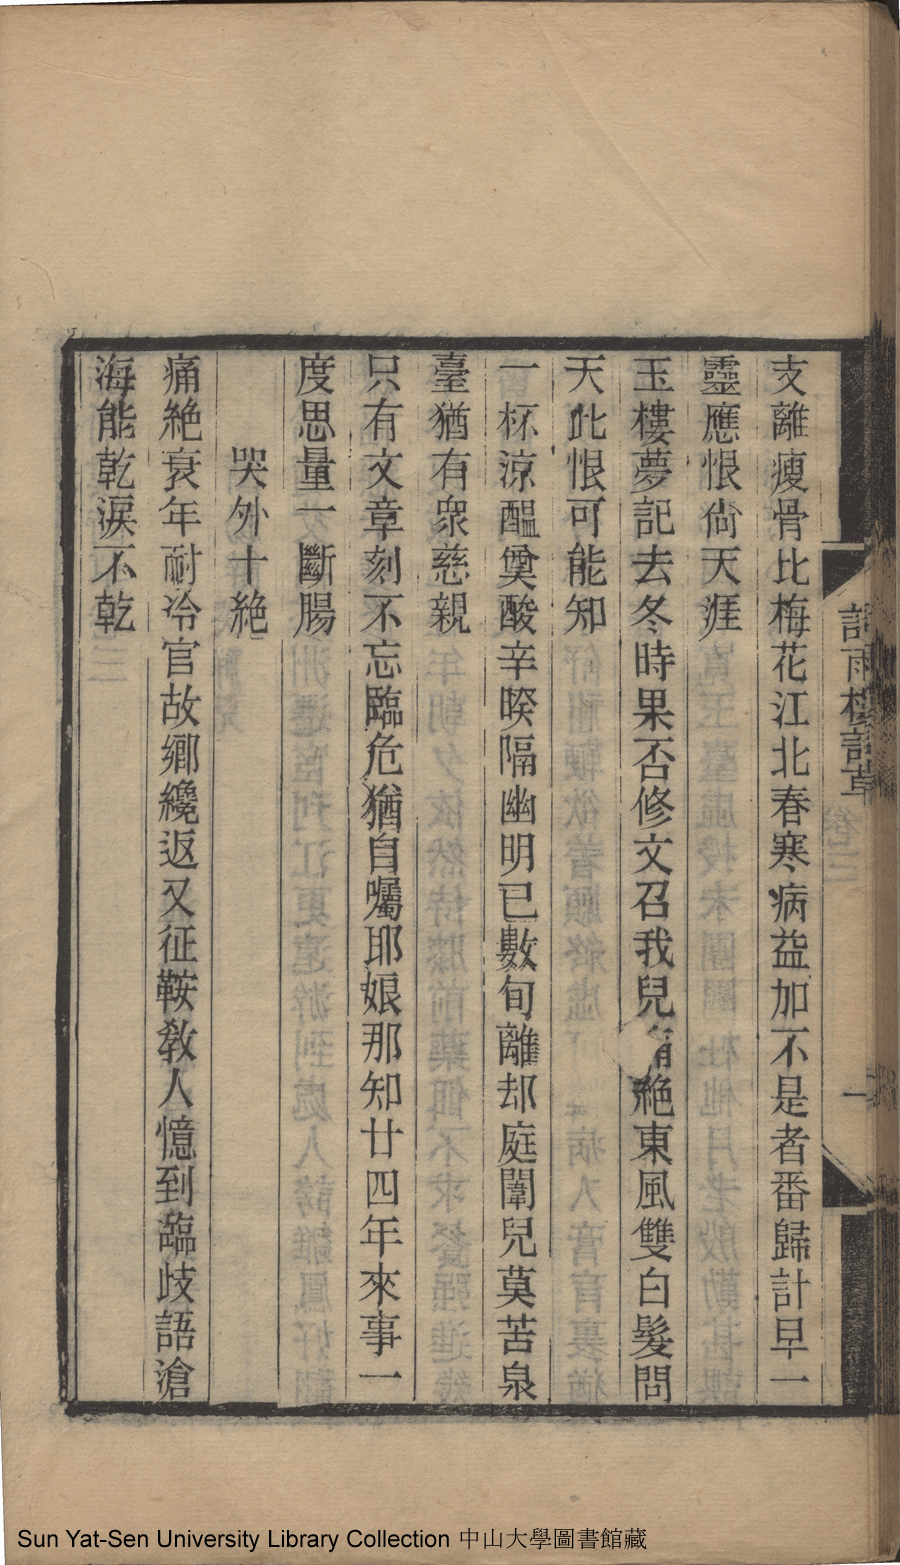 支離瘦骨比梅花江北春寒病益加不是者番歸計早一
靈應恨尙天涯
玉樓夢記去冬時果否修文召我兒絶東風雙白髮問
天此恨可能知
一杯涼醖奠酸辛暌隔幽明已數旬離却庭闈兒莫苦泉
臺猶有衆慈親
只有文章刻不忘臨危猶自囑耶娘那知廿四年來事一
度思量一斷腸
哭外十絶
痛絶衰年耐冷官故鄉纔返又征鞍敎人憶到臨歧語滄
海能乾淚不乾
雨樓詩草
一
Sun Yat-Sen University Library Collection 中山大學圖書館藏